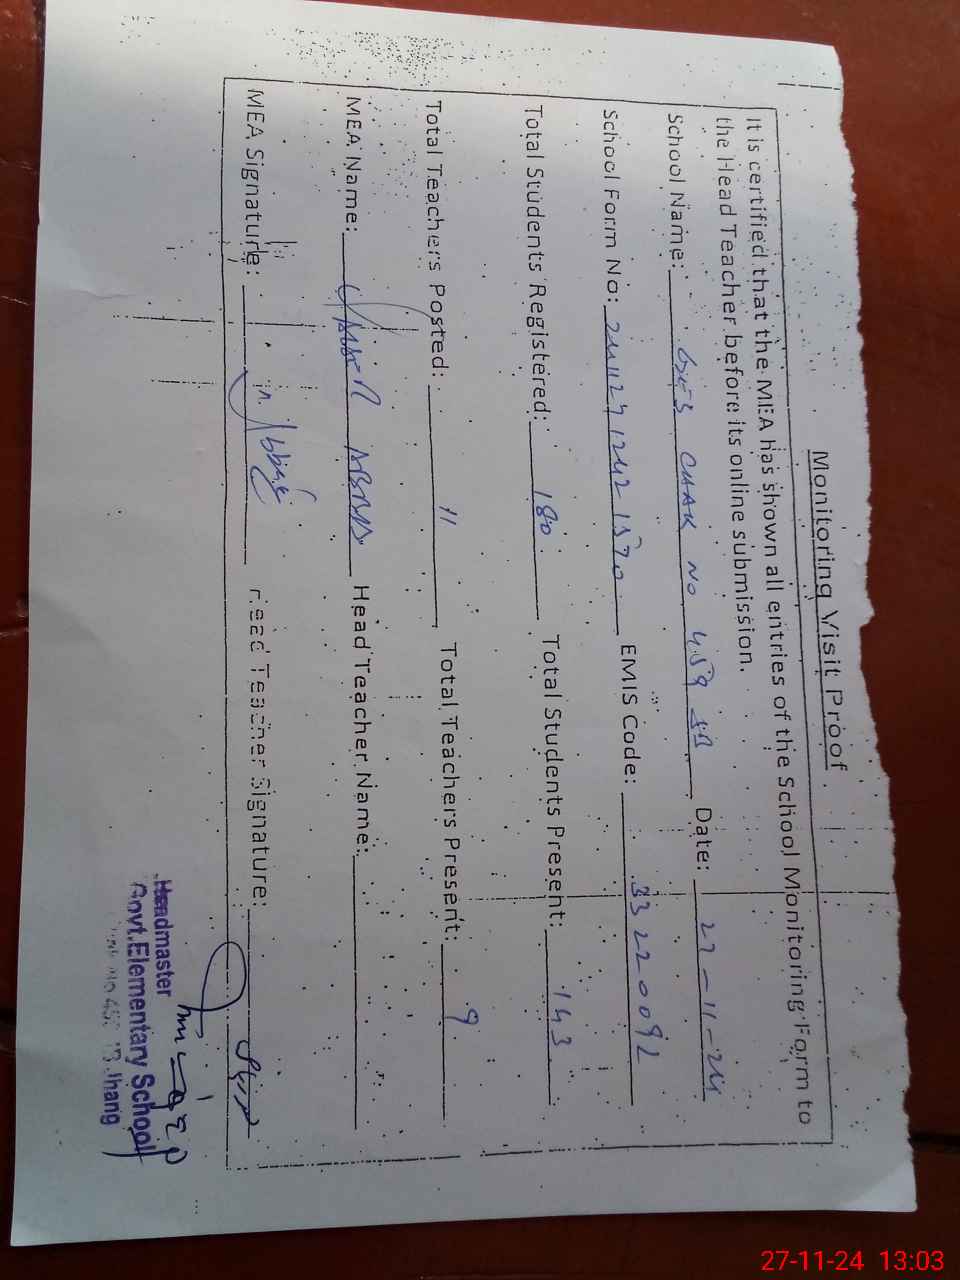 Monitoring Visit Proof
It is certified that the MEA has shown all entries of the School Monitoring Form to
the Head Teacher before its online submission.
School Name: GES CHAK NO 459 JB Date: 27-11-24
School Form No: 24112712421570 EMIS Code: 33220092
Total Students Registered: 180 Total Students Present: 143
Total Teachers Posted: 11 Total Teachers Present: 9
MEA Name: YASIR ABBAS Head Teacher Name:
MEA Signature: Head Teacher Signature:
Headmaster
Govt.Elementary School
Jhang
27-11-24 13:03